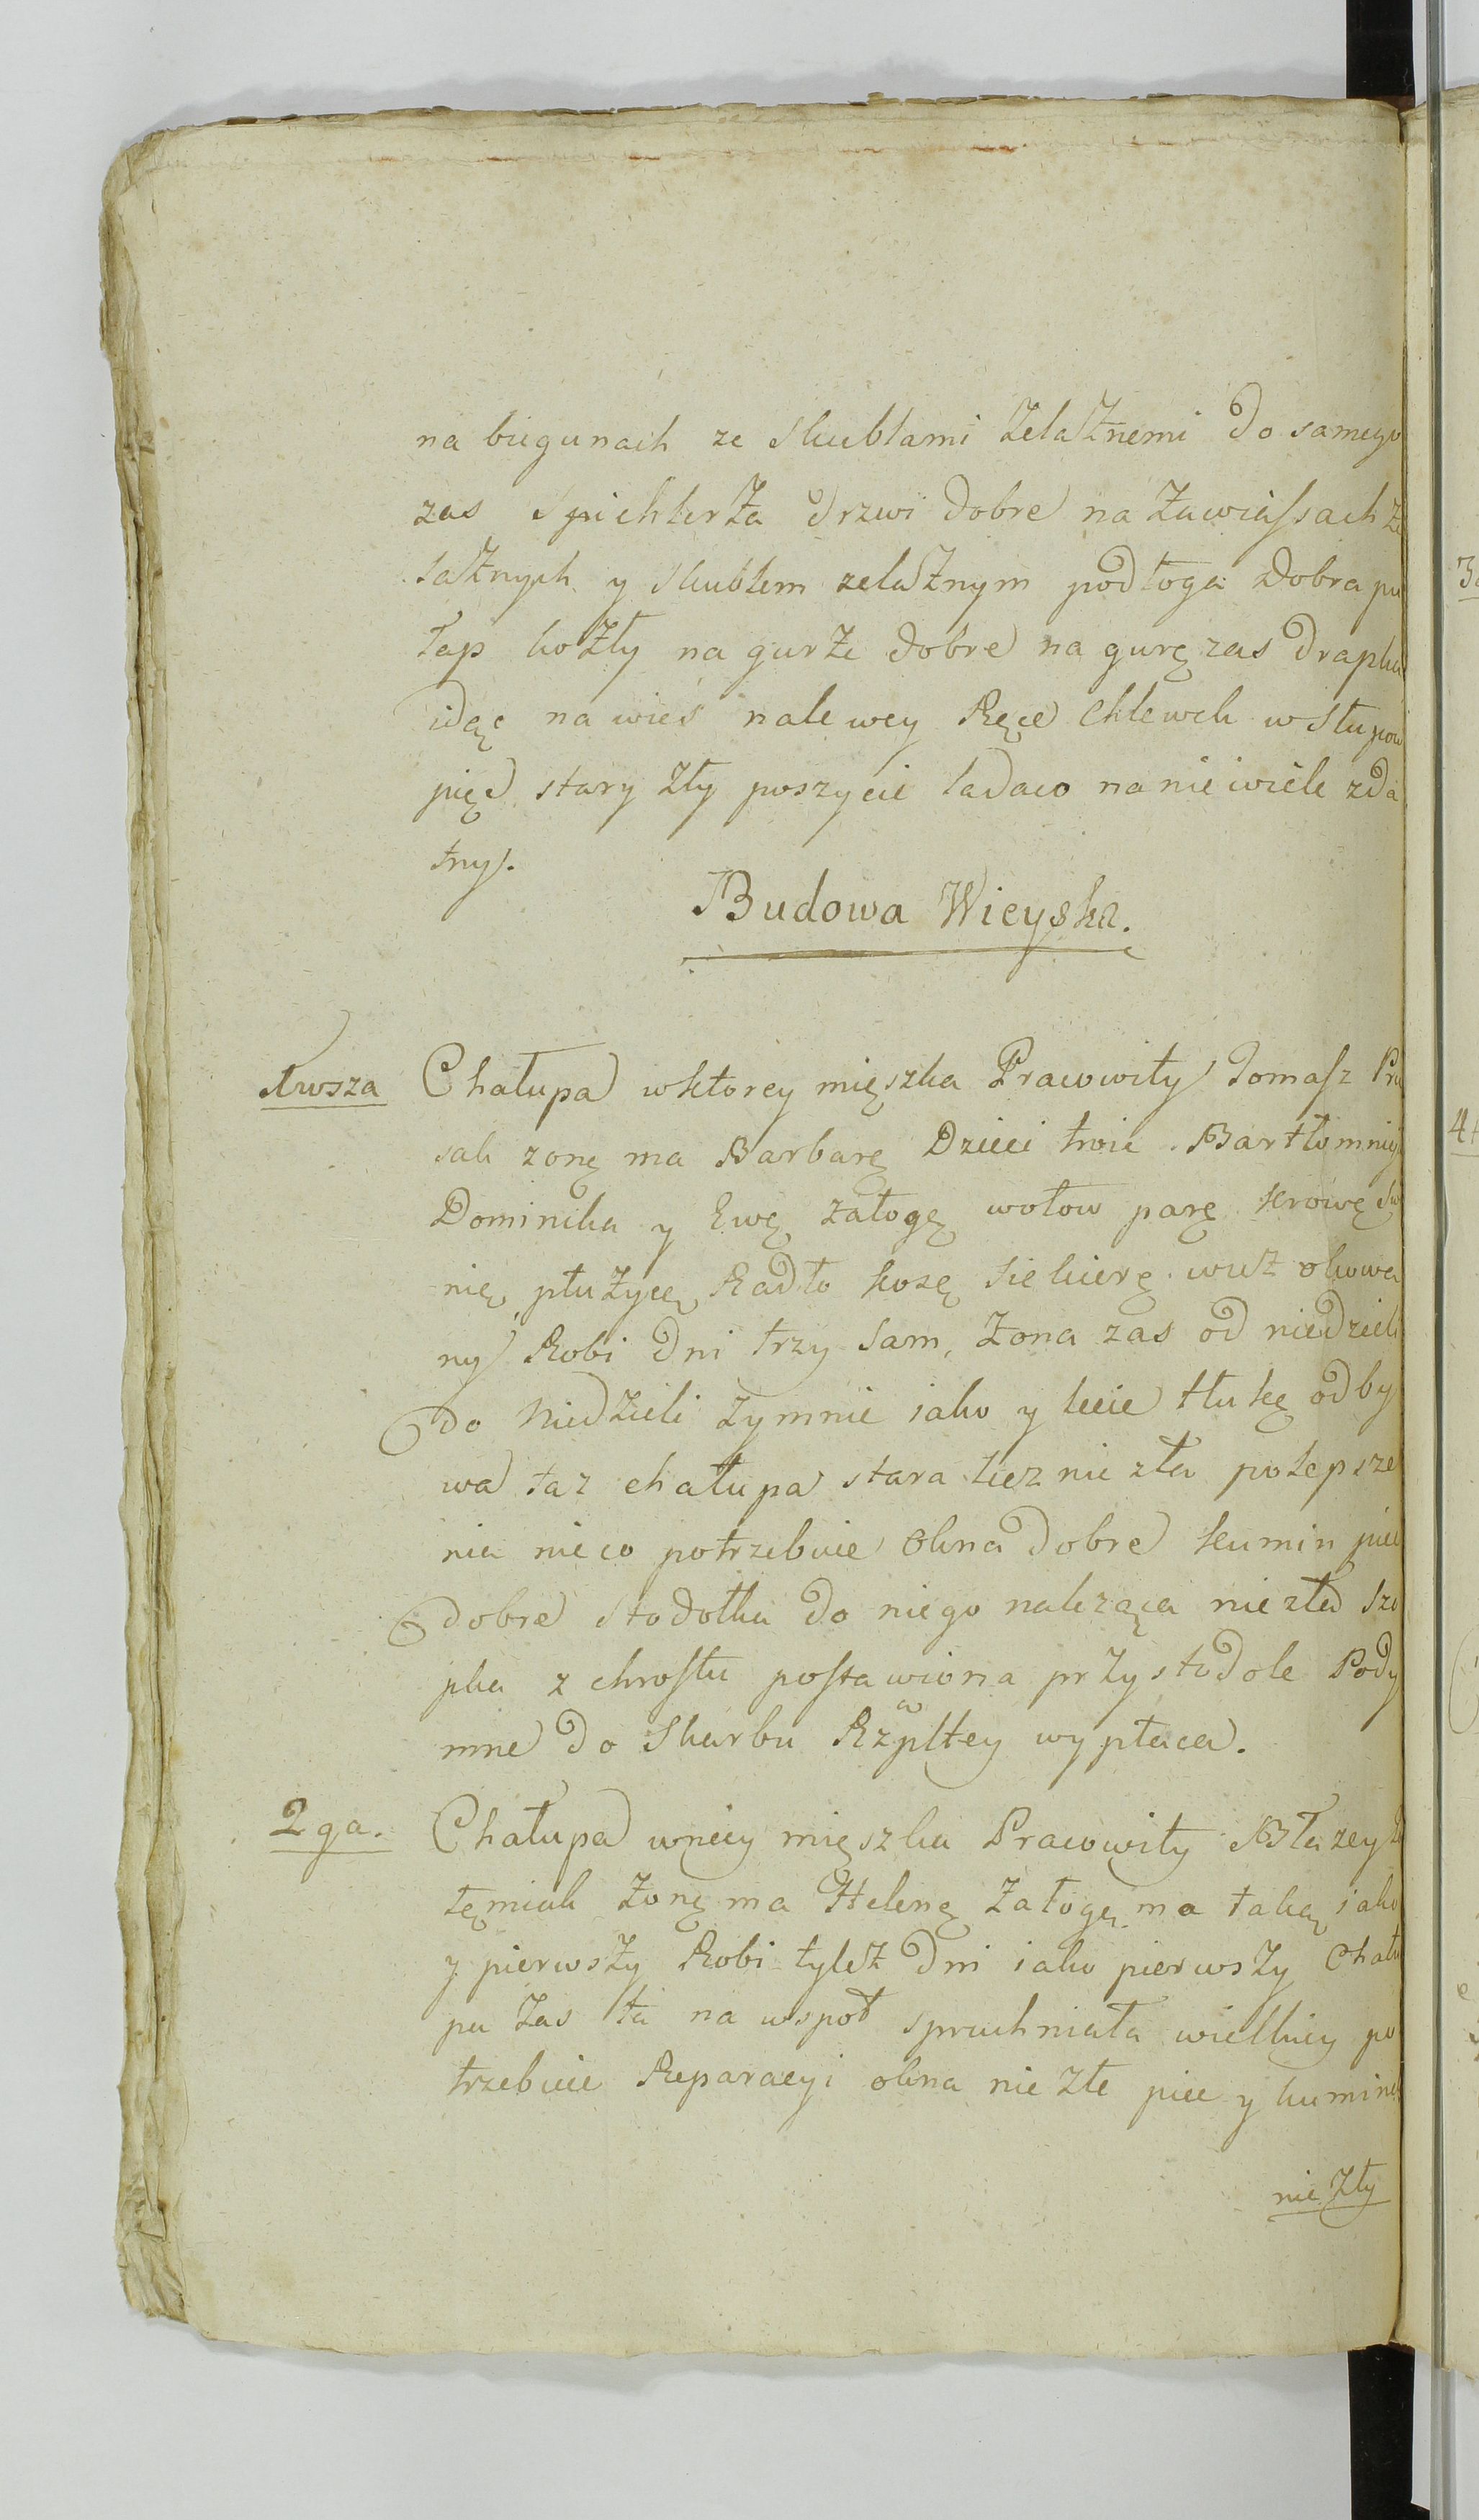 na biegunach ze skublami żelaznemi do samego
zas spichlerża drzwi dobre na zawiassach że
laznych y skublem zelaznym podłoga dobra pu
łap kozły na gurze dobre na gurę zas drapka
idąc na wieś na lewey Ręce chlewek w słupow
pięc stary zły poszycie ladaco na nie wiele zda
tny.
Budowa Wieyska.
1wsza Chałupa w ktorey mięszka Pracowity Tomasz Pru
sak zonę ma Barbarę Dzieci troie Bartłomnieja
Dominika y Ewę załogę wołow parę krowę św
nię płużycę Radło kosę siekierę wuz okowa
ny Robi dni trzy sam, żona zas od niedzieli
do Niedzieli zymnie iako y lecie tłukę odby
wa taz chałupa stara lecz nie zła polepsze
nia nieco potrzebuie okna dobre kumin piec
dobre stodołka do niego należąca nie zła szo
pka z chrostu postawiona przy stodole Pody
mne do Skarbu Rzpltey wypłaca.
2ga. Chałupa w niey mięszka Pracowity Błazey
tęmiak żonę ma Helenę załogę ma taką iako
y pierwszy Robi tylez dni iako pierwszy Chału
pa zas ta na wspoł spruchniała wielkiey po
trzebuie Reparacyi okna nie złe piec y kuminek
nie zły